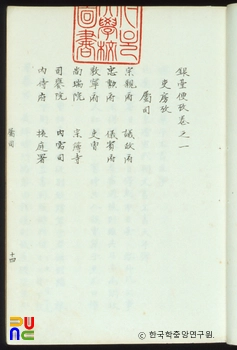 大學校
圖書
銀臺便攷卷之一
吏房攷
屬司
宗親府 議政府
忠勳府 儀賓府
敦寧府 吏曹
尙瑞院 宗簿寺
司饔院 內需司
內侍府 掖庭署
屬司 十四
ⓒ 한국학중앙연구원